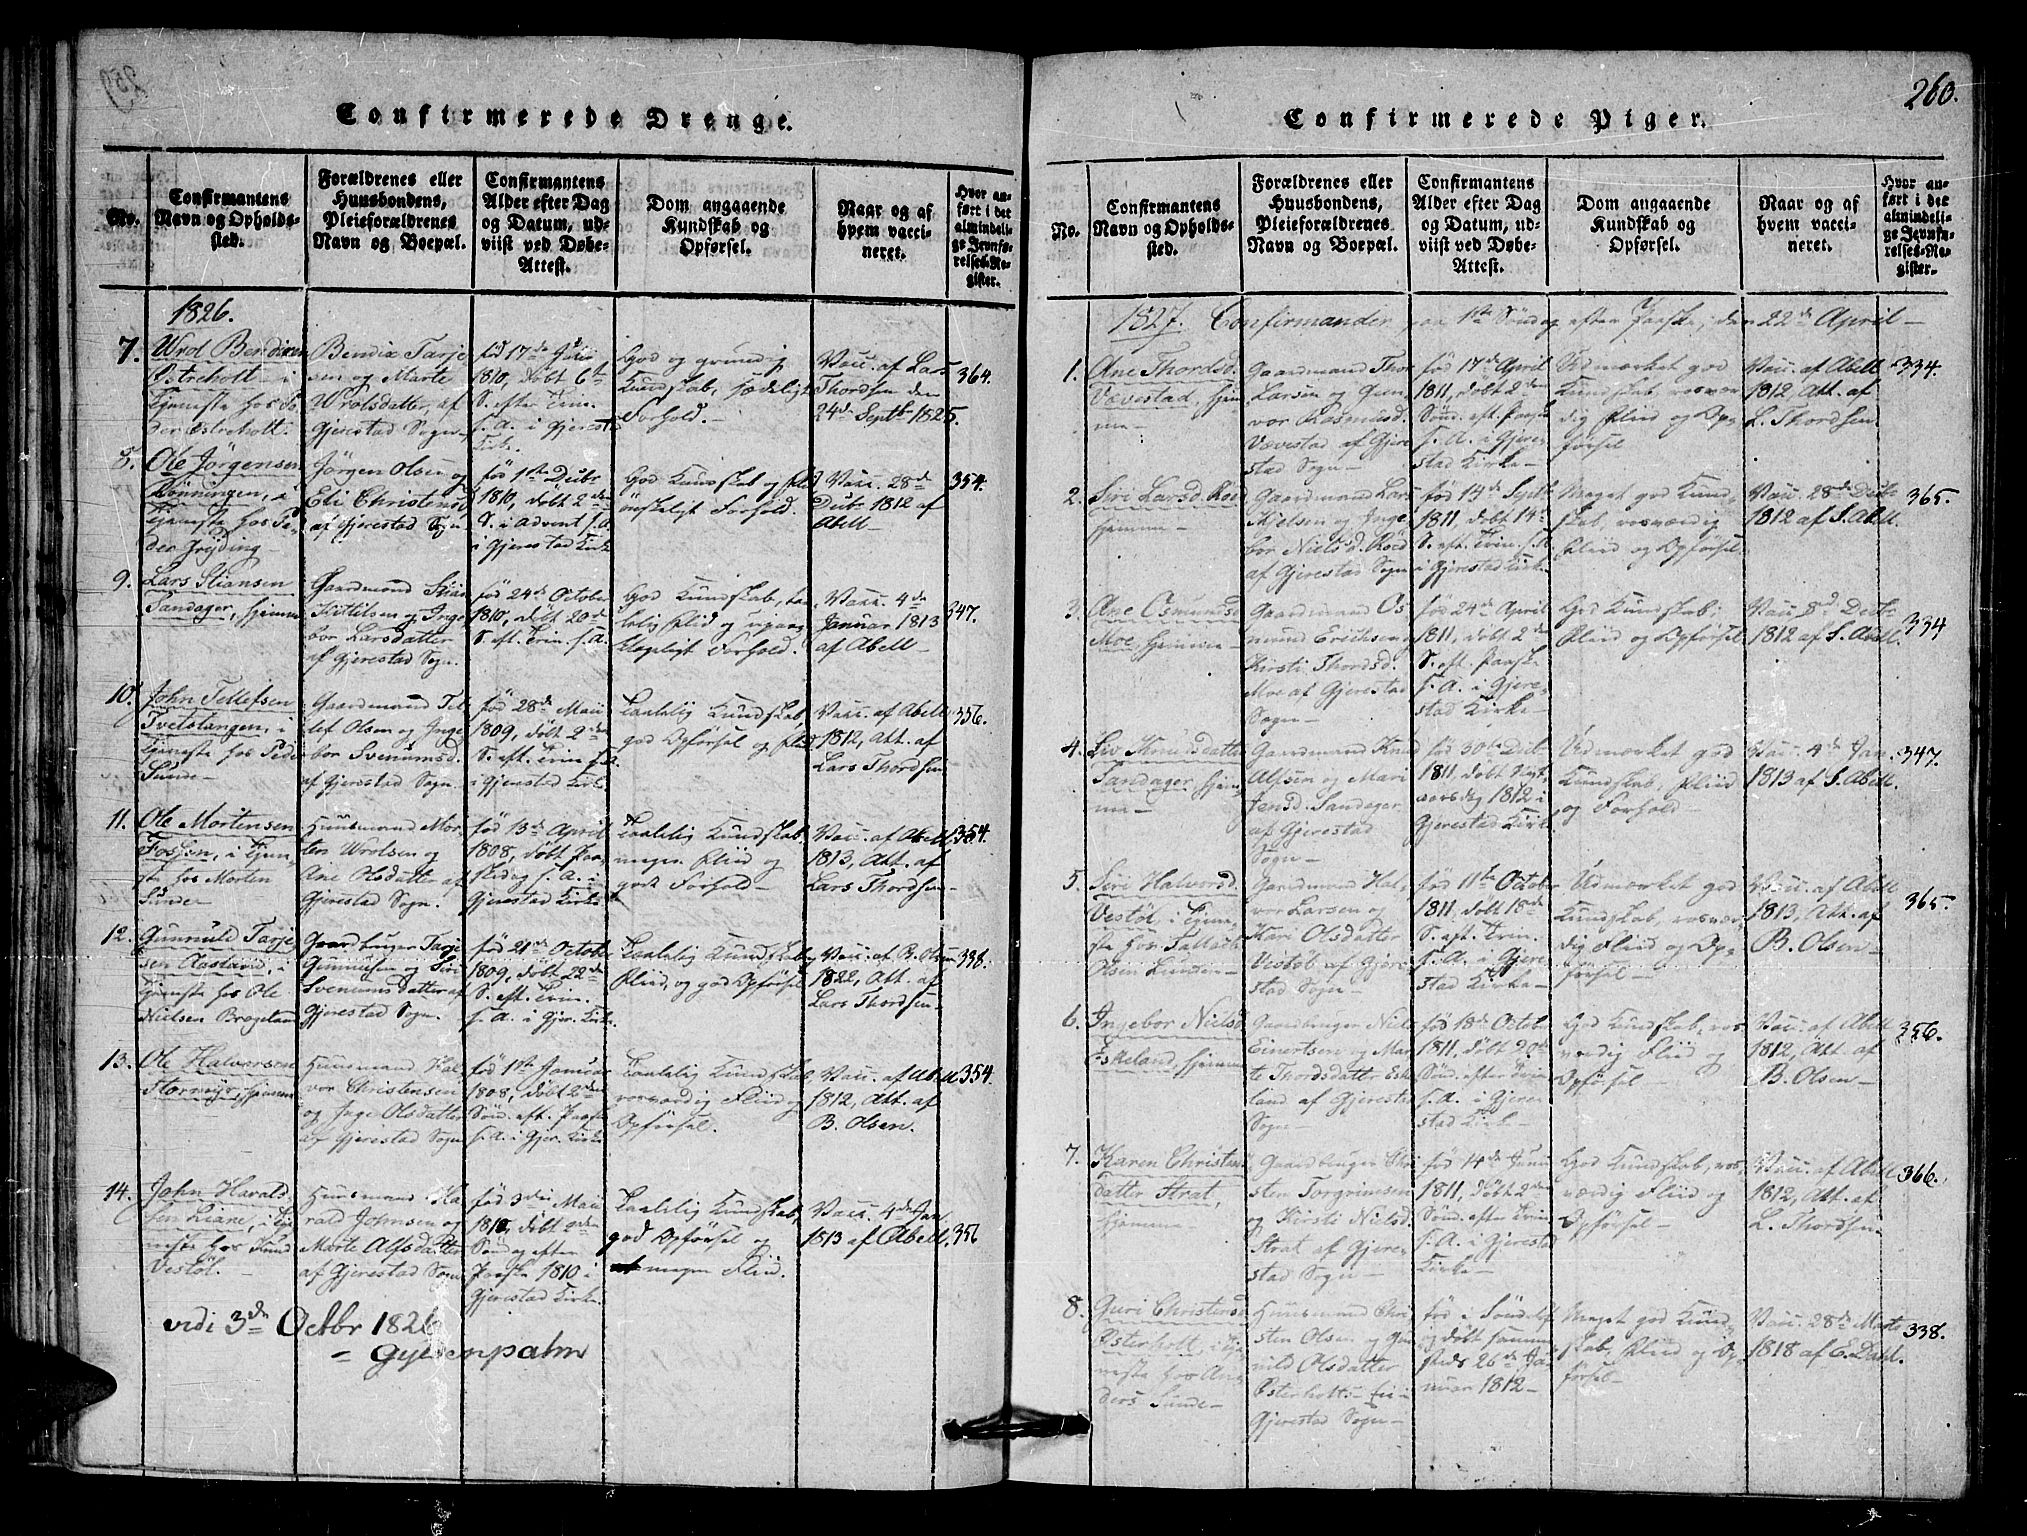 259
Confirmerede Drenge.
No.
Confirmantens
Navn og Opholds-
sted.
Forældrenes eller
Huusbondens,
Pleieforældrenes
Navn og Boepæl.
Confirmantens
Alder efter Dag
og Datum, ud-
viist ved Døbe-
Attest.
Dom angaaende
Kundskab og
Opførsel.
Naar og af
hvem vacci-
neret.
Hvor an-
ført i det
almindeli-
ge Jevnfø-
relses-Re-
gister.
1826.
7.
Wrol Bendixen
Østreholt i
Tjeneste hos
Østreholt.
Bendix Tarje
sen og Marte
Wrolsdatter, af
Gjerestad Sogn
født 17de Juni
1810, døbt 6te
S. efter Trin.
s. A. i Gjerest
Kirke
God og grundig
Kundskab, sædeligt
Forhold.
Vacc. af Lars
Thordsen den
24de Septbr 1825.
364.
8.
Ole Jørgensen
Rønningen, i
Tjeneste hos Pe-
der
Jørgen Olsen og
Eli Christensd
af Gjerestad Sogn
født 1ste Decbr
1810, døbt 2den
S. i Advent s. A
i Gjerestad Kirke
God Kundskab og Flid
ønskeligt Forhold.
Vacc. 28de
Decbr 1812 af
Abell
354.
9.
Lars Stiansen
Sandager, hjemme
Gaardmand Stian
Kittilsen og Inge
bor Larsdatter
af Gjerestad Sogn.
født 24de October
1810, døbt 20de
S. eft. Trin. s. A.
God Kundskab,
Flid og upaa
klageligt Forhold.
Vacc. 4de
Januar 1813
af Abell
347.
10.
John Tellefsen
Tvetstangen, i
Tjeneste hos Peder
Sunde
Gaardmand Tel
lef Olsen og Inge
bor Svenumsd.
af Gjerestad Sogn.
født 28de Mai
1809, døbt 2den
S. eft. Trin s. A.
i Gjerestad Kirke
Taalelig Kundskab
god Opførsel og Flid
Vacc. af Abell
1812, Att. af
Lars Thordsen
356.
11.
Ole Mortensen
Fossen, i Tjene
ste hos Morten
Sunde
Huusmand Mor
ten Wrolsen og
Ane Olsdatter af
Gjerestad Sogn.
født 13de April
1808, døbt Paa
skedag s. A. i
Gjerestad Kirke
Taalelig Kundskab
megen Fliid og
godt Forhold
Vacc. af Abell
1813, Att. af
Lars Thordsen
354.
12.
Gunnuld Tarje
sen Aastavd, i
Tjeneste hos Ole
Nielsen Brogeland
Gaardbruger Tarje
Gunnulsen og Siri
Svenums datter af
Gjerestad Sogn.
født 21de October
1809, døbt 22de
S. eft. Trin.
s. A. i Gjer. Kirke
Taalelig Kundskab
Fliid, og god Opførsel
Vacc. af B. Olsen
1822, Att. af
Lars Thordsen
338.
13.
Ole Halvorsen
Stormyr, hjemme
Huusmand Hal
vor Christensen
og Inge Olsdatter
af Gjerestad Sogn
født 1ste Januar
1808, døbt 2den
Sønd. eft. Paaske
s. A. i Gjer. Kirke
Taalelig Kundskab
rosværdig Fliid og
Opførsel.
Vacc. af Abell
1812, Att. af
B. Olsen.
354.
14.
John Harald
sen Liane, i Tje
neste hos Knud
Vestøl.
Huusmand Ha
rald Johnsen og
Marte Alfsdatter
af Gjerestad Sogn
født 3die Mai
1810, døbt 2den
Søndag efter
Paaske 1810 i
Gjerestad Kirke.
Taalelig Kundskab,
god Opførsel og
megen Fliid.
Vacc. 4de Jan
1813 af Abell.
356
vidi 3de Octbr 1826
Gyldenpalm
260.
Confirmerede Piger.
No.
Confirmantens
Navn og Opholds-
sted.
Forældrenes eller
Huusbondens,
Pleieforældrenes
Navn og Boepæl.
Confirmantens
Alder efter Dag
og Datum, ud-
viist ved Døbe-
Attest.
Dom angaaende
Kundskab og
Opførsel.
Naar og af
hvem vacci-
neret.
Hvor an-
ført i det
almindeli-
ge Jevnfø-
relses-Re-
gister.
1827. Confirmander paa 1ste Søndag efter Paaske, den 22de April
1.
Ane Thordsd.
Vævestad, hjem
me
Gaardmand Thor
Larsen og Gun
vor Rasmusd.
Vævestad af Gjere
stad Sogn
født 17de April
1811, døbt 2den
Sønd. eft. Paaske
s. A. i Gjere
stad Kirke
Udmærket god
Kundskab, rosvær
dig Fliid og Op
førsel
Vacc. af Abell
1812, Att. af
L. Thordsen
334.
2.
Siri Larsd. Røed
hjemme
Gaardmand Lars
Kjelsen og Inge
bor Nielsd. Røed
af Gjerestad Sogn
født 14de Septb
1811, døbt 14de
S. eft. Trin. s. A
i Gjerestad Kirke.
Meget god Kund
skab, rosværdig
Fliid og Opførsel
Vacc. 28de Decbr
1812 af S. Abell.
365.
3.
Ane Osmundsd
Moe, hjemme
Gaardmand Os
mund Eriksen og
Kirsti Thordsd.
Moe af Gjerestad
Sogn
født 24de April
1811, døbt 2den
S. eft. Paaske
s. A. i Gjere
stad Kirke
God Kundskab,
Fliid og Opførsel
Vacc. 8de Decbr
1812 af S. Abell
334
4.
Siv Knudsdatter
Sandager, hjem
me
Gaardmand Knud
Alfsen og Mari
Jensd. Sandager
af Gjerestad
Sogn
født 30te Decbr
1811, døbt Nyt
aarsdag 1812 i
Gjerestad Kirke
Udmærket god
Kundskab, Fliid
og Forhold
Vacc. 4de Jan.
1813 af S. Abell.
347.
5.
Siri Halvorsd.
Vestøl, i Tjene
ste hos Tallack
Olsen Lunden
Gaardmand Hal
vor Larsen og
Kari Olsdatter
Vestøl af Gjere
stad Sogn
født 11te October
1811, døbt 18de
S. eft. Trin.
s. A. i Gjere
stad Kirke
Udmærket god
Kundskab, rosvær
dig Fliid og Op
førsel
Vacc. af Abell
1813, Att. af
B. Olsen
365.
6.
Ingebor Nielsd
Eskeland, hjemme
Gaardbruger Niels
Einertsen og Mar
te Thordsdatter Eske
land af Gjerestad
Sogn
født 18de October
1811, døbt 20de
Sønd. efter Trin
s. A. i Gjere
stad Kirke
God Kundskab, ros
værdig Fliid og
Opførsel
Vacc. af Abell
1812, Att. af
B. Olsen
356.
7.
Karen Christens
datter Strat,
hjemme
Gaardbruger Chri
sten Torgrimsen
og Kirsti Nielsd.
Strat af Gjere
stad Sogn
født 14de Juni
1811, døbt 2den
Sønd. efter Trin
s. A. i Gjerestad
Kirke
God Kundskab, ros
værdig Fliid og
Opførsel
Vacc. af Abell
1812, Att. af
L. Thordsen
366.
8.
Guri Christensd
Østerholt, i Tje
neste hos An
ders Sunde
Huusmand Chri
sten Olsen og Gun
nild Olsdatter
Østerholts Eie i
Gjerestad Sogn
født i Søndelef
og døbt samme
steds 26de Ja
nuar 1812
Meget god Kund
skab, Fliid og Op
førsel
Vacc. 28de Marts
1818 af E. Dahl.
338.